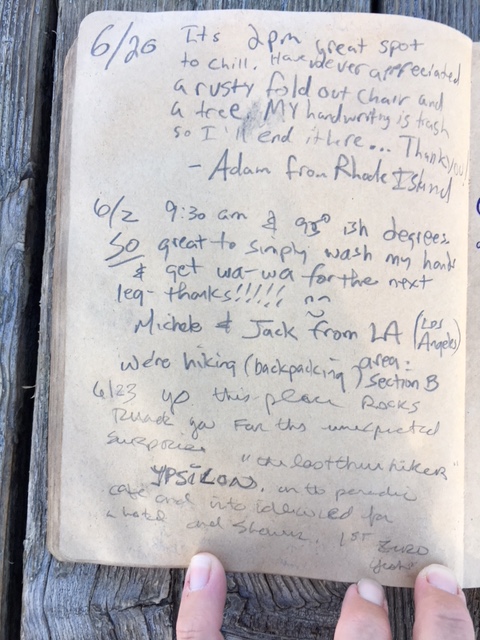 6/26 Its 2pm great spot
to chill. Have never appreciated
a rusty fold out chair and
a tree. My handwriting is trash
so I'll end it here... Thank you!
- Adam from Rhode Island
6/2 9:30 am & 95° ish degrees
SO great to simply wash my hands
& get wa-wa for the next
leg - thanks!!!!!
Michele & Jack from LA (Los Angeles)
We're hiking (backpacking) area:
Section B
6/23 yo this place ROCKS
Thank you For this unexpected
surprise. "the last thru hiker"
YPSILON. on to paradise
cafe and into idlewild for
a hotel and shower. 1ST ZERO
yeah"